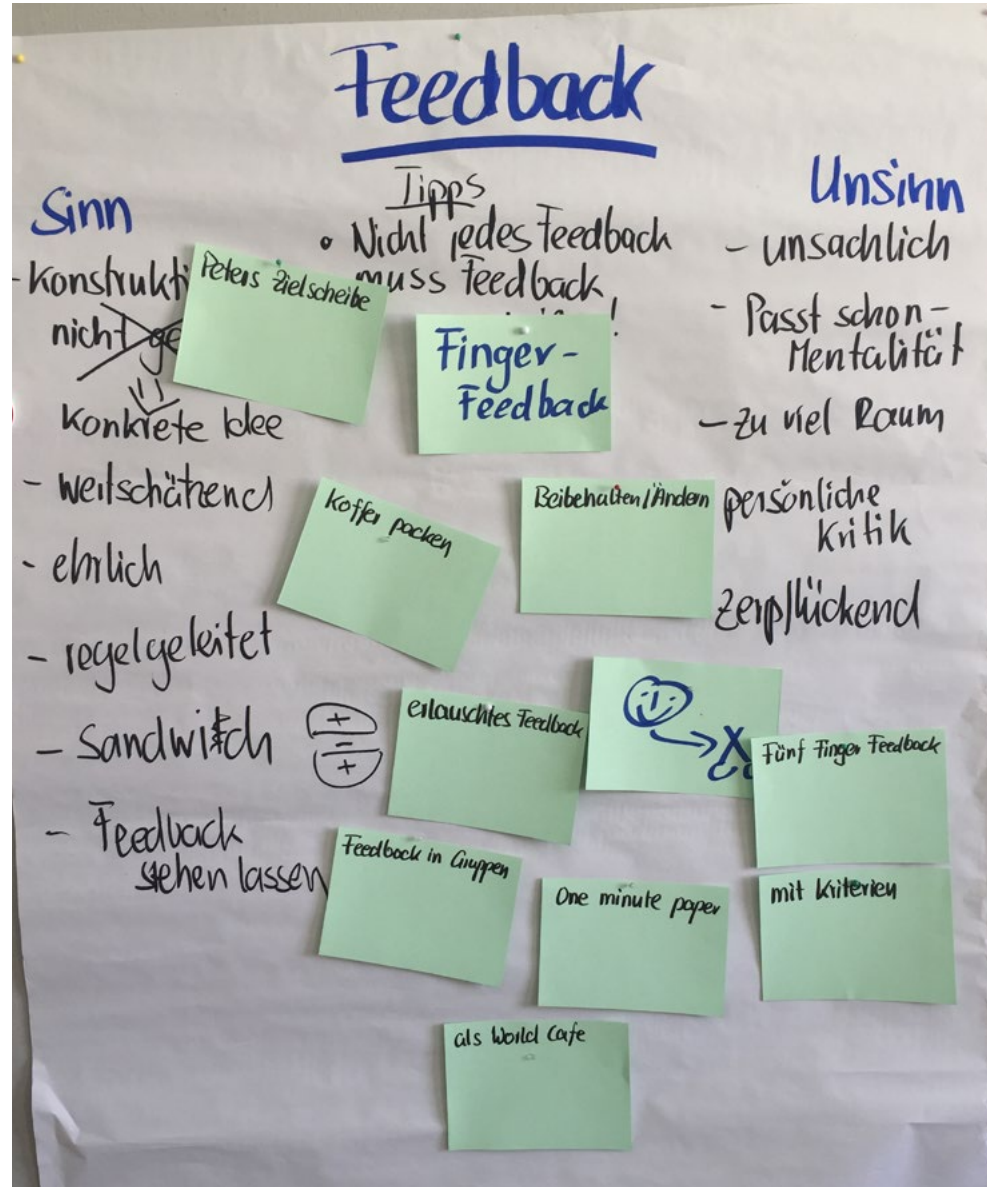 Feedback
Sinn
- Konstrukti
nicht ge
Konkrete Idee
- wertschätzend
- ehrlich
- regelgeleitet
- Sandwitch
+
-
+
- Feedback
stehen lassen
Tipps
• Nicht jedes Feedback
muss Feedback
!
Unsinn
- unsachlich
- Passt schon-
Mentalität
- zu viel Raum
persönliche
Kritik
zerpflückend
Peters Zielscheibe
Finger-
Feedback
Koffer packen
Beibehalten/Ändern
erlauschtes Feedback
Fünf Finger Feedback
Feedback in Gruppen
One minute paper
mit Kriterien
als World Cafe